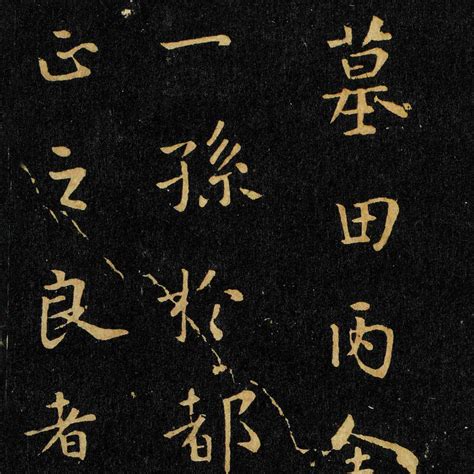 墓田丙舍
一孫於都
正之良者